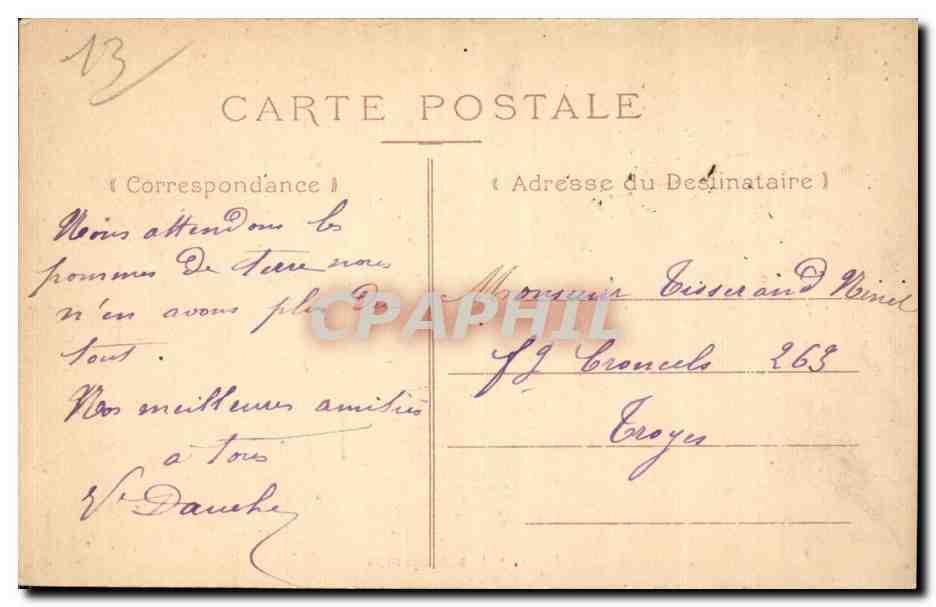 13
CARTE POSTALE
(Correspondance)
Nous attendons les
pommes de terre nous
n'en avons plus du
tout.
Nos meilleures amitiés
à tous
Ve Dauche
(Adresse du Destinataire)
Monsieur Tisserand
fg Croncels 263
Troyes
CPAPHIL